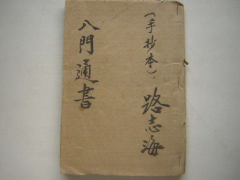 (手抄本)、路志海
八門通書